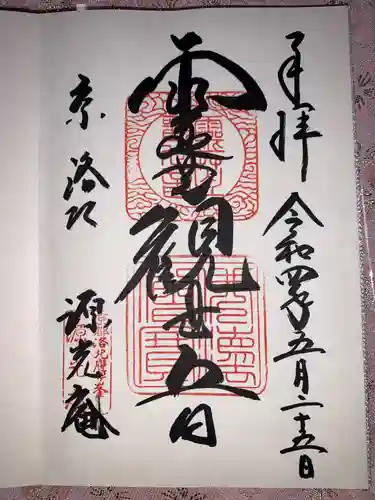 奉拝 令和四年五月二十五日
霊芝観世音
京 洛北 源光庵